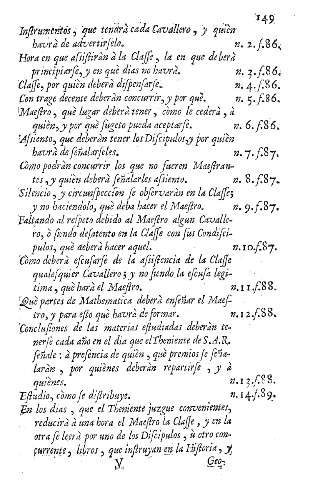 149
Instrumentos, que tendrà cada Cavallero, y quièn
havrà de advertirselo. n. 2. f. 86.
Hora en que assistiràn à la Classe, la en que deberà
principiarse, y en que dias no havrà. n. 3. f. 86.
Classe, por quièn deberà dispensarse. n. 4. f. 86.
Con trage decente deberàn concurrir, y por què. n. 5. f. 86.
Maestro, què lugar deberà tener, còmo le cederà, à
quièn, y por què sugeto pueda aceptarse. n. 6. f. 86.
Assiento, que deberàn tener los Discipulos, y por quièn
havrà de señalarseles. n. 7. f. 87.
Còmo podràn concurrir los que no fueren Maestran-
tes, y quièn deberà señalarles assiento. n. 8. f. 87.
Silencio, y circunspeccion se observaràn en la Classe;
y no haciendolo, què deba hacer el Maestro. n. 9. f. 87.
Faltando al respeto debido al Maestro algun Cavalle-
ro, ò siendo desatento en la Classe con sus Condisci-
pulos, què deberà hacer aquel. n. 10. f. 87.
Còmo deberà escusarse de la assistencia de la Classe
qualesquier Cavallero; y no siendo la escusa legi-
tima, què harà el Maestro. n. 11. f. 88.
Què partes de Mathematica deberà enseñar el Maes-
tro, y para esso què havrà de formar. n. 12. f. 88.
Conclusiones de las materias estudiadas deberàn te-
nerse cada año en el dia que el Theniente de S.A.R.
señale: à presencia de quièn, què premios se seña-
laràn, por quiènes deberàn repartirse, y à
quiènes. n. 13. f. 88.
Estudio, còmo se distribuye. n. 14. f. 89.
En los dias, que el Theniente juzgue convenientes,
reducirà à una hora el Maestro la Classe, y en la
otra se leerà por uno de los Discipulos, ù otro con-
currente, libros, que instruyan en la Historia, y
V. Geo-